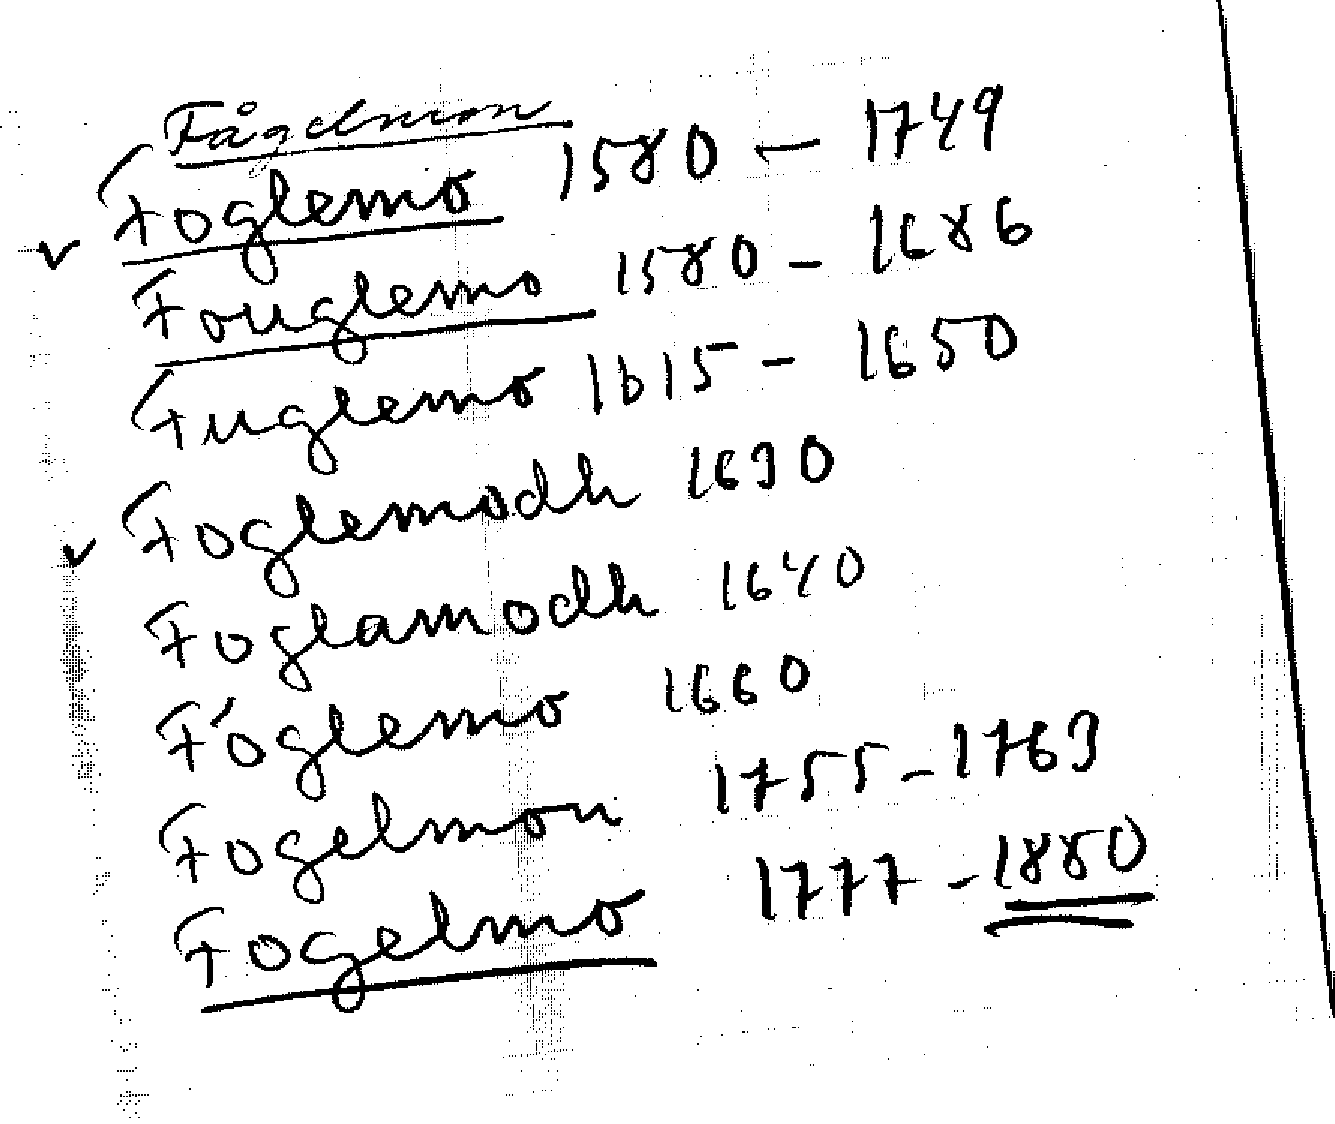 Fågelmon
Foglemo 1580 - 1749
v Fouglemo 1580 - 1686
Fuglemo 1615 - 1650
Foglemodh 1630
v Foglamodh 1640
Fóglemo 1660
Fogelmon 1755 - 1763
Fogelmo 1777 - 1880